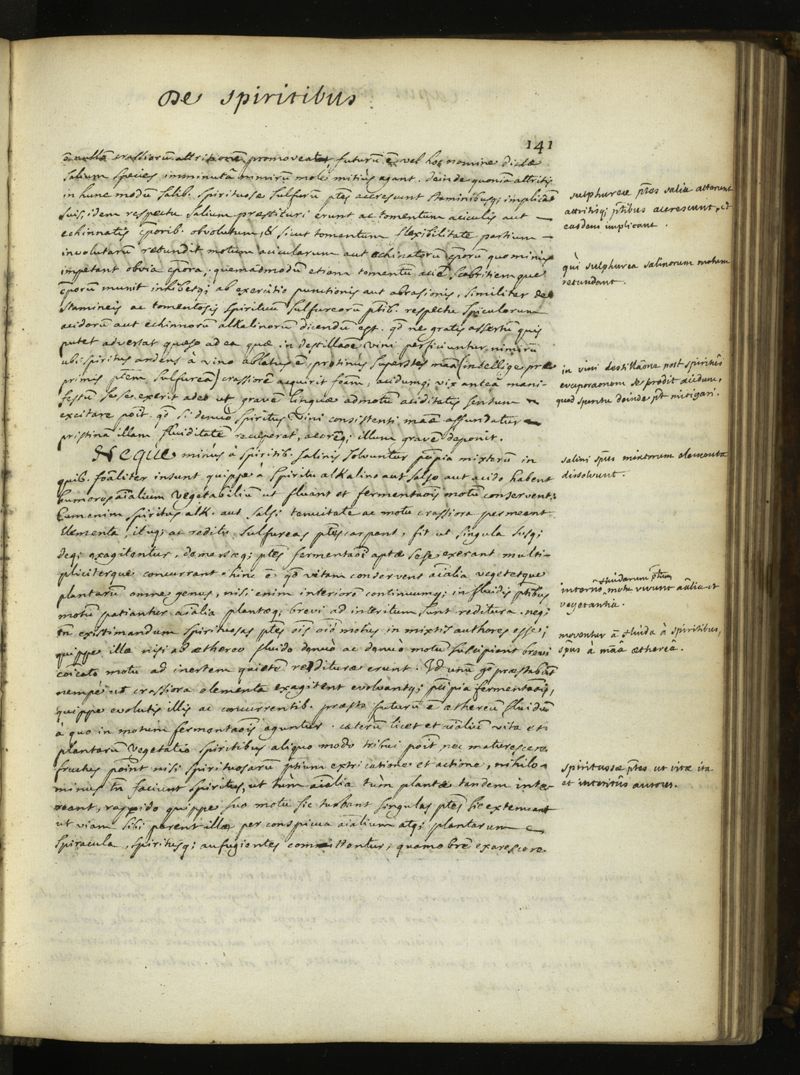 De Spiritibus
141
crassiorũ attritione promoveatr, futurũ ẽ vel hoc nomine dictæ
salium species imminutâ nimirũ mole mitius agant. deinde quoniã attritis
in hunc modũ salib. spirituosæ sulfurũ ptes accrescunt staminibusq; implicãt
suis, idem respectu salium præstituri erunt ac tomentum aciculis aut
echinnatis cporib. obvolutum, & sicut tomentum flexibilitate partium
involutarũ retundit motum acicularum aut echinatorũ cporũ quo minus
impetant obvia cpora, quemadmodũ etiam tomentũ scabritiemque
cporũ munit inhibetq; ab exercitio punctionis aut abrasionis, similiter de
stamineis ac tomentosis spirituũ sulfureorũ ptib. respectu spiculorum
acidorũ aut echinnorũ alkalinorũ dicendũ est. qd ne gratis assertũ quis
putet advertat quæso ad ea quæ in destillaõe vini perficiuntur, nimirũ
ubi spiritus ardens à vino ablatus ẽ, protinus superstes maã (intellige præ
primis ptem sulfuream) crassiorẽ acquirit foãm, acidumq; vix anteà mani-
festũ sese exerit adeò ut gravẽ linguæ admotũ aciditatis sensum
excitare poĩt. qd si denuò spiritus vini consistenti maæ affundatur
pristinam illam fluiditatẽ recuperat, acreq; illum gravẽ deponit.
Neque minus à spiritib. salinis solvuntur pĩpia mixtorũ in
quib. foãliter insunt quippe à spiritu alkalino aut salso aut acido habent
humores aĩalium vegetabiliũ ut fluant et fermentaõis motũ conservent;
Etenim spiritus alk. aut salsi tenuitate ac motu crassiora permeant
elementa, itaq; ac reditu sulfureas ptes carpant, fit ut singula susq;
deq; exagitentur, demersæq; ptes fermentaõi aptæ sese exerant multi-
pliciterque concurrant. hinc ẽ qd vitam conservent aĩalia vegetetque
plantarũ omne genus, nisi enim interiorẽ continuumq; in fluidis ptibus
motũ patiantur aĩalia plantæq; brevi ad interitum sunt reditura. neq;
tñ existimandum spirituosas ptes oĩs oĩo motus in mixtis authores esse;
quippe illæ nisi ad æthereo fluido denuò ac denuò motũ suscipiant brevi
cõicato motu ad inertem quietẽ redituræ erunt. Id unũ go præstabũt
nempe ut crassiora elementa exagitent evolvantq; pĩpia fermentaõis,
quippe evolutis illis ac concurrentib. præsto futurũ ẽ æthereũ fluidũ
à quo in motum fermentaõis aguntur. cæterũ licet et aĩaliũ vita et
plantarũ vegetatio spiritibus aliquo modo tribui poĩt nec maturescere
fructus poĩnt nisi spirituosarũ ptium extricatione et actione, nihilo
minus tñ faciunt spiritus, ut tùm aĩalia tùm plantæ tandem inte-
reant, rapido quippe suo motu sic turbant singulas ptes sic extenuant
ut viam sibi parent illæ per conspicua aĩalium atq; plantarum
spiracula, spiritusq; aufugientes comittantur, quamobrẽ exarescere
sulphureæ ptes salia atterunt
attritisq; ptibus accrescunt, et
easdem implicant.
quî sulphurea salinorum motum
retundant.
in vini destillaõne post spiritûs
evaporaõnem se prodit acidum,
quod spiritu deinde pt mitigari.
salini spũs mixtorum elementa
dissolvunt.
fluidarum ptium
interno motu vivunt aãlia et
vegetantia.
moventur ã fluida à spiritibus,
spũs à mãâ ætherea.
spirituosæ ptes ut vitæ ita
et interitûs autores.